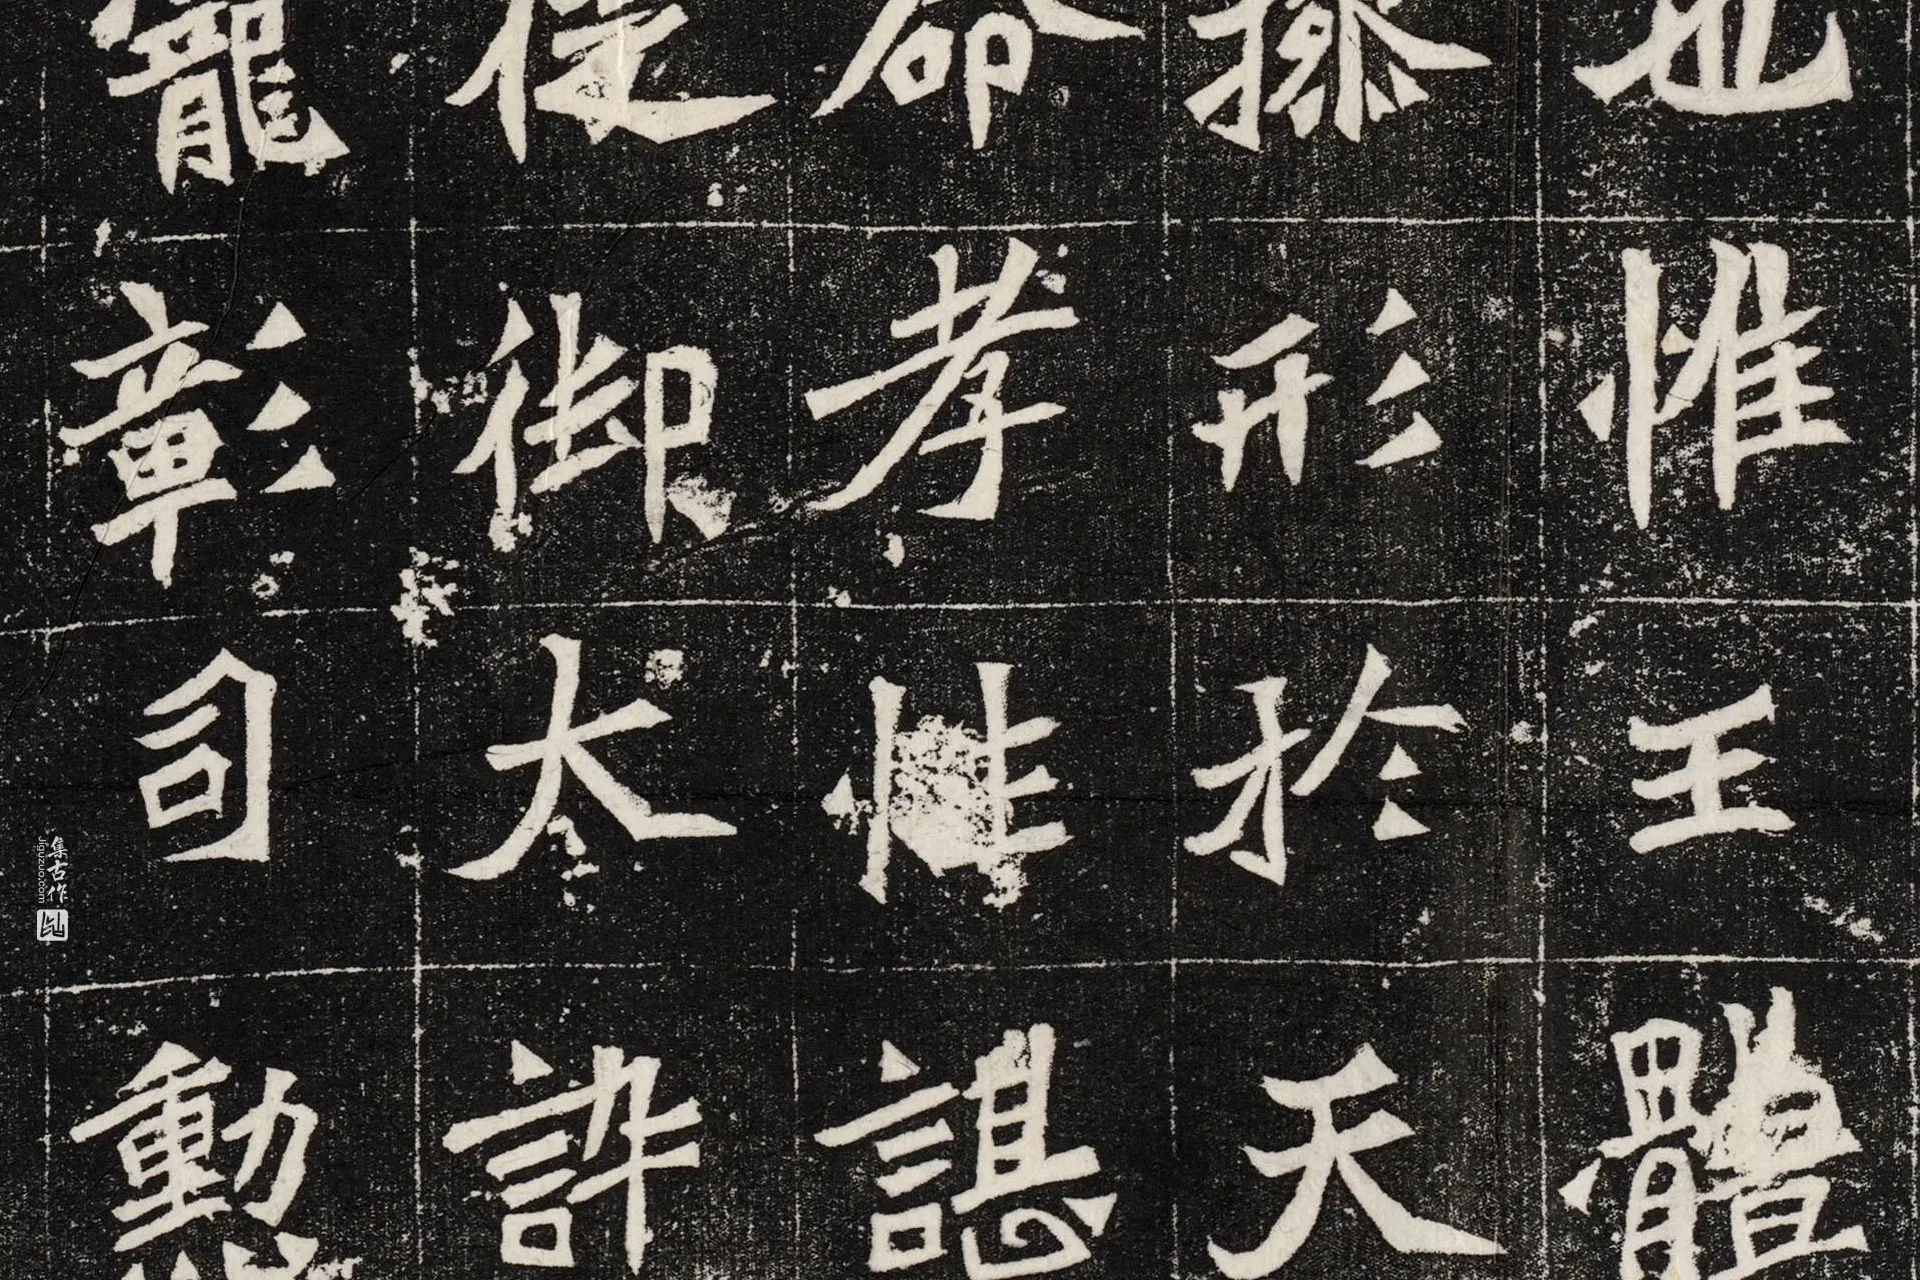 也惟王體
操形於天
命孝性諶
御太許
寵彰司勳
集古作
jiguzuo.com